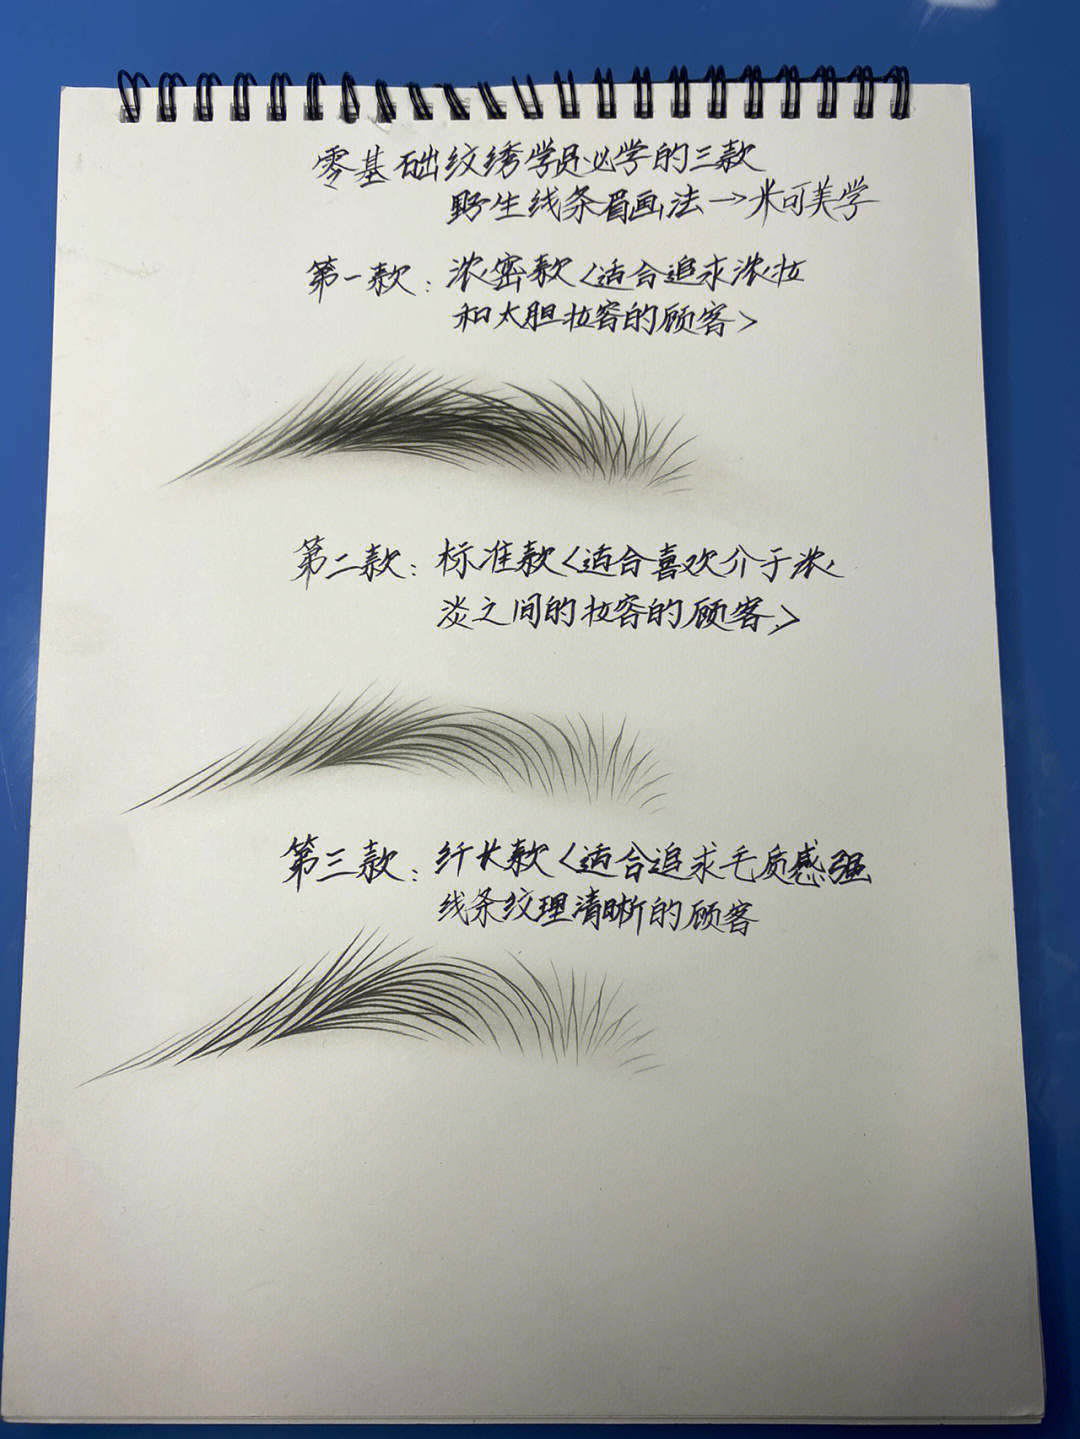 零基础纹绣学员必学的三款
野生线条眉画法→米可美学
第一款：浓密款<适合追求浓妆
和大胆妆容的顾客>
第二款：标准款<适合喜欢介于浓
淡之间的妆容的顾客>
第三款：纤长款<适合追求毛质感强
线条纹理清晰的顾客